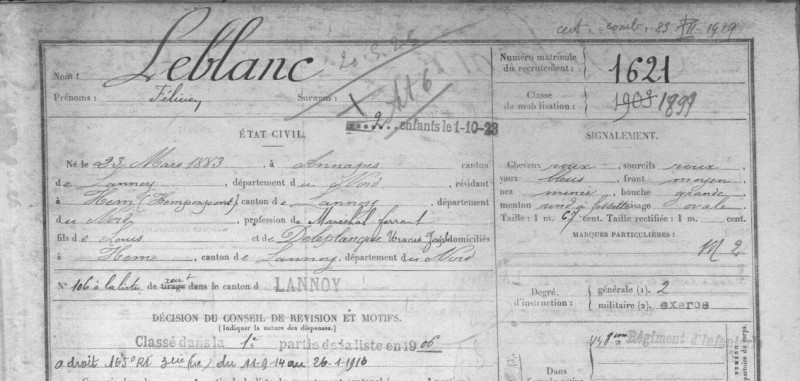 cert. comb. 23 XII-1929
20.5.25
Nom: Leblanc
Prénoms: Félicien Surnom:
At 6
X 2 enfants le 1-10-23
Numéro matricule du recrutement: 1621
Classe de mobilisation: 1903 1899
ÉTAT CIVIL.
Né le 23 Mars 1883, à Annapes canton
de Lannoy, département du Nord, résidant
à Hem (Hempempont) canton de Lannoy, département
du Nord, profession de Maréchal ferrant
fils de Louis et de Deleplanque Uranie domiciliés
à Hem, canton de Lannoy, département du Nord
N° 106 à la liste de tirage recent dans le canton d LANNOY
DÉCISION DU CONSEIL DE REVISION ET MOTIFS.
(Indiquer la nature des dispenses.)
Classé dans la 1e partie de la liste en 1906
a droit 165e RI du 11-9-14 au 26-1-1916
SIGNALEMENT.
Cheveux roux, sourcils roux
yeux bleus, front moyen
nez mince, bouche grande
menton rond à fossette visage ovale
Taille: 1 m. 67 cent. Taille rectifiée: 1 m. cent.
MARQUES PARTICULIÈRES:
M 2
Degré d'instruction: générale (1). 2
militaire (2). exercé
Régiment d'Infanterie
Dans
NUMÉRO